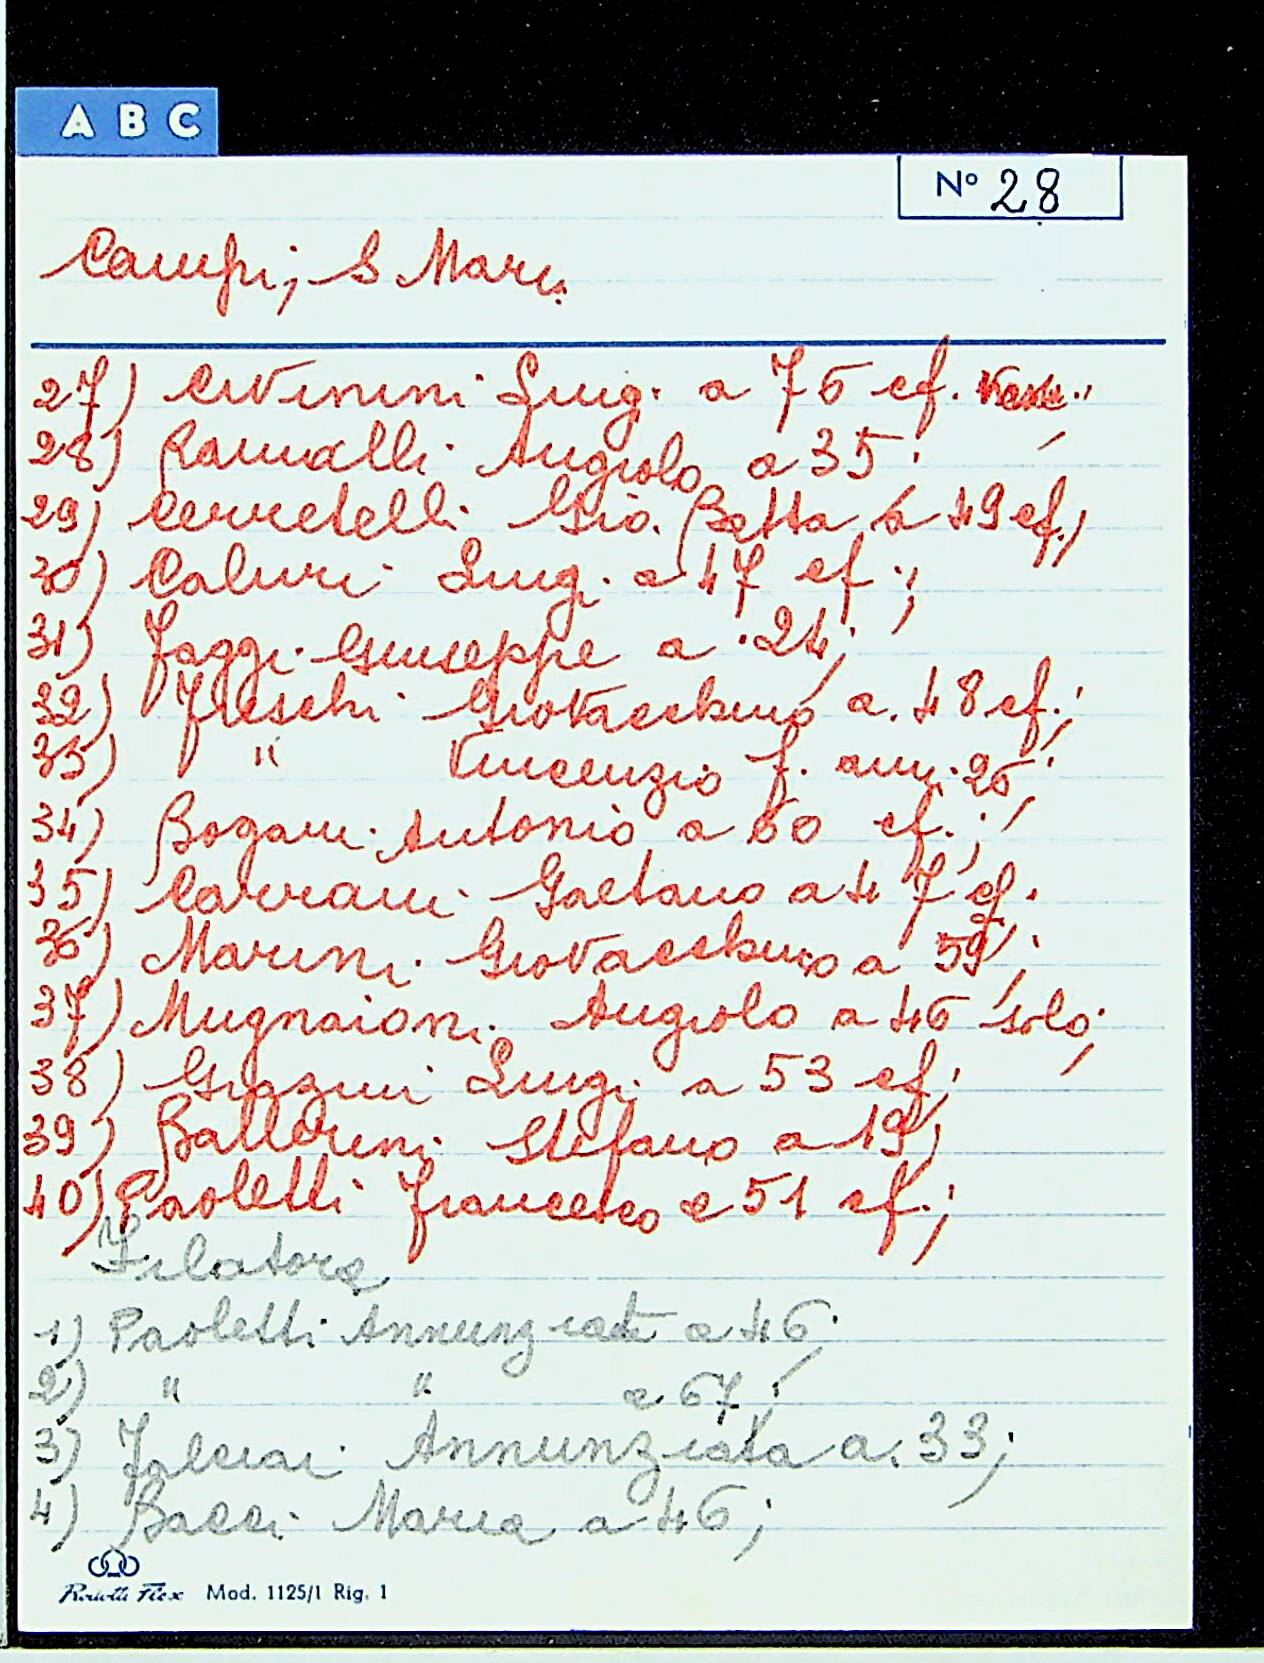 A B C
Nº 28
Campi; S Mari.
27) Civinini Luig. a 76 cf.
28) Ramalli Angiolo a 35;
29) Cerretelli Gio. Batta a 49 cf.;
30) Caluri Luig. a 47 cf.;
31) Faggi Giuseppe a 24;
32) Fieschi Giovacchino a. 48 cf.;
33) " Vincenzio f. ann. 26;
34) Bogani Antonio a 60 cf.;
35) Carrani Gaetano a 47 cf.
36) Marini Giovacchino a 59;
37) Mugnaioni Angiolo a 46 solo;
38) Grazini Luigi a 53 cf;
39) Ballerini Stefano a 19;
40) Paoletti Francesco a 51 cf.;
Filatora
1) Paoletti Annunziata a 46;
2) " " a 67;
3) Falciai Annunziata a. 33;
4) Bacci Maria a 46;
Mod. 1125/1 Rig. 1